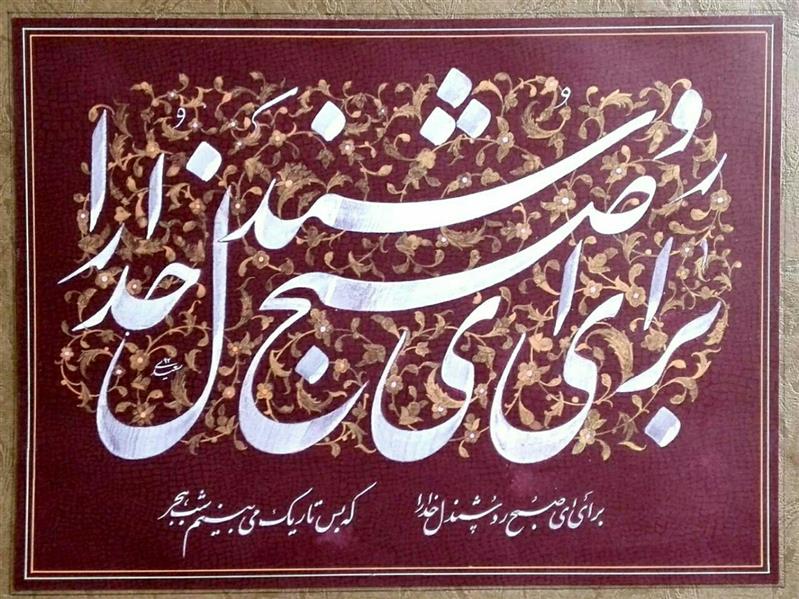 برای ای صبح روشندل خدارا
برای ای صبح روشندل خدارا که بس تاریک می بینم شب هجر